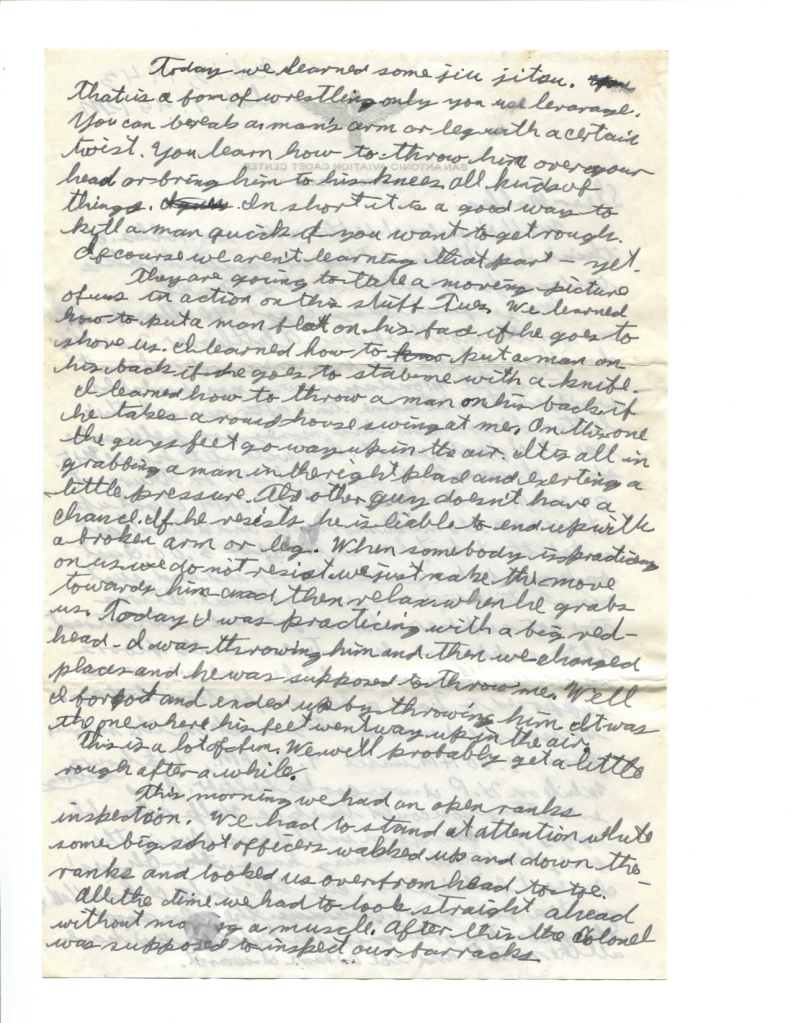 Today we learned some jiu jitsu.
That is a fom of wrestling only you use leverage.
You can break a man's arm or leg with a certain
twist. You learn how to throw him over your
head or bring him to his knees all kinds of
things. In short it is a good way to
kill a man quick if you want to get rough.
Of course we aren't learning that part - yet.
They are going to take a moving picture
of us in action on this stuff Tues. We learned
how to put a man flat on his face if he goes to
shove us. I learned how to put a man on
his back if he goes to stab me with a knife.
I learned how to throw a man on his back if
he takes a round house swing at me. On this one
the guys feet go way up in the air. It is all in
grabbing a man in the right place and exerting a
little pressure. The other guy doesn't have a
chance. If he resists he is liable to end up with
a broken arm or leg. When somebody is practicing
on us we do not resist we just make the move
towards him and then relax when he grabs
us. Today I was practicing with a big red-
head - I was throwing him and then we changed
places and he was supposed to throw me. Well
I forgot and ended up by throwing him. It was
the one where his feet went way up in the air.
This is a lot of fun. We will probably get a little
rough after a while.
This morning we had an open ranks
inspection. We had to stand at attention while
some big shot officers walked up and down the
ranks and looked us over from head to toe.
All the time we had to look straight ahead
without a muscle. After this the Colonel
was supposed to inspect our barracks
SAN ANTONIO AVIATION CADET CENTER